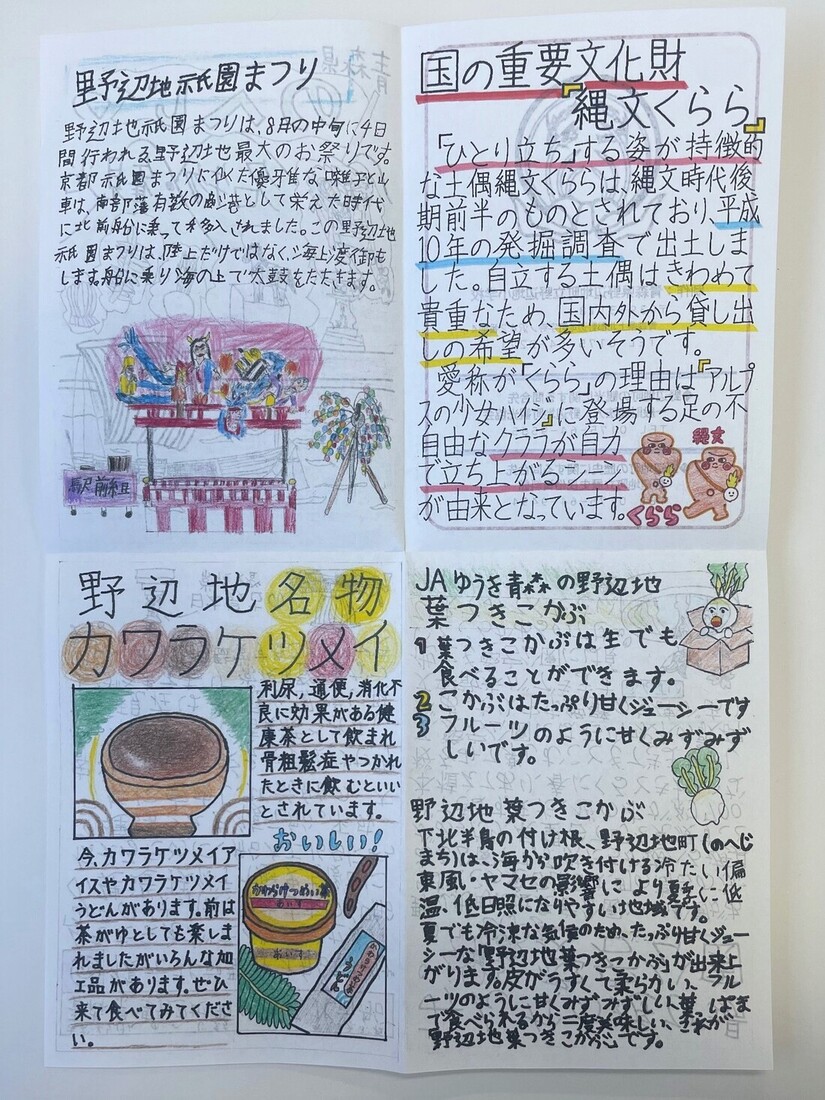 野辺地祇園まつり
野辺地祇園まつりは、8月の中旬に4日
間行われる野辺地最大のお祭りです。
京都祇園まつりに似た優雅な囃子と山
車は、南部藩有数の湊として栄えた時代
に北前船に乗って移入されました。この野辺地
祇園まつりは、陸上だけではなく、海上渡御も
します。船に乗り海の上で太鼓をたたきます。
前組
国の重要文化財
『縄文くらら』
「ひとり立ち」する姿が特徴的
な土偶縄文くららは、縄文時代後
期前半のものとされており、平成
10年の発掘調査で出土しま
した。自立する土偶はきわめて
貴重なため、国内外から貸し出
しの希望が多いそうです。
愛称が「くらら」の理由は『アルプ
スの少女ハイジ』に登場する足の不
自由なクララが自力
で立ち上がるシーン
が由来となっています。
縄文
くらら
野辺地名物
カワラケツメイ
利尿，通便，消化不
良に効果がある健
康茶として飲まれ
骨粗鬆症やつかれ
たときに飲むといい
とされています。
おいしい!
今、カワラケツメイア
イスやカワラケツメイ
うどんがあります。前は
茶がゆとしても楽しま
れましたがいろんな加
工品があります。ぜひ
来て食べてみてくださ
い。
かわらけつめい茶
あいす
あいす
かわらけつめい
うどん
JAゆうき青森の野辺地
葉つきこかぶ
1 葉つきこかぶは生でも
食べることができます。
2 こかぶはたっぷり甘くジューシーです
3 フルーツのように甘くみずみず
しいです。
野辺地葉つきこかぶ
下北半島の付け根、野辺地町(のへじ
まち)は、海から吹き付ける冷たい偏
東風・ヤマセの影響により夏に低
温、低日照になりやすい地域です。
夏でも冷涼な気候のため、たっぷり甘くジュー
シーな「野辺地葉つきこかぶ」が出来上
がります。皮がうすくて柔らかい、フル
ーツのように甘くみずみずしい、葉っぱま
で食べられるから二度美味しい、それが
野辺地葉つきこかぶです。